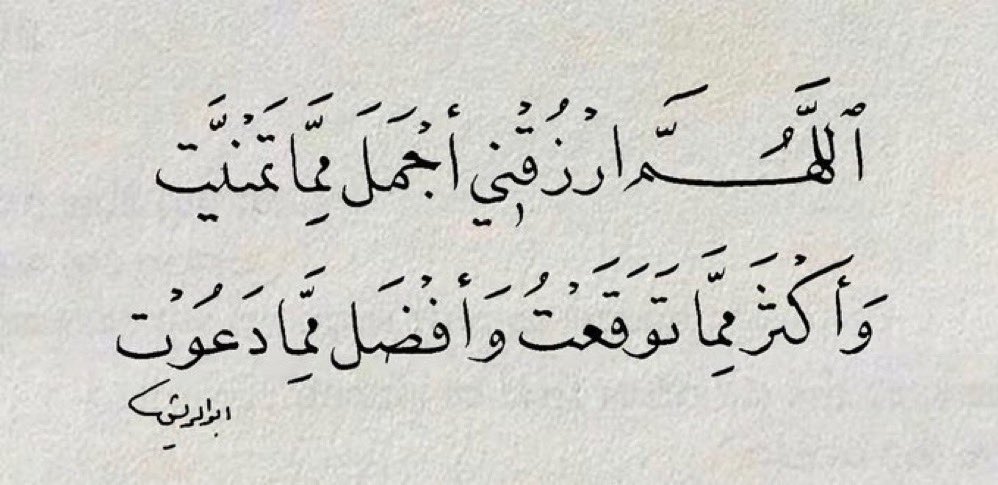 ٱللَّهُمَّ ارْزُقْنِي أَجْمَلَ مِمَّا تَمَنَّيْت
وَأَكْثَرَ مِمَّا تَوَقَعْتُ وَأَفْضَل مِمَّا دَعَوْت